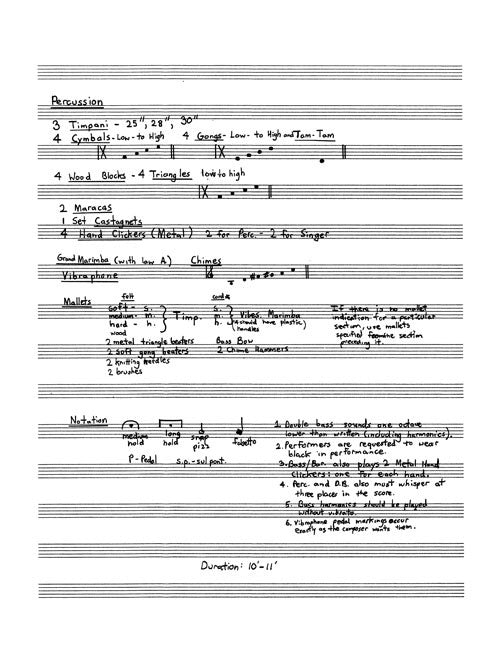 Percussion
3 Timpani - 25", 28", 30"
4 Cymbals - Low - to High 4 Gongs - Low - to High and Tam-Tam
4 Wood Blocks - 4 Triangles low to high
2 Maracas
1 Set Castagnets
4 Hand Clickers (Metal) 2 for Perc. - 2 for Singer
Grand Marimba (with low A) Chimes
Vibraphone
Mallets
felt
soft - s.
medium - m.
hard - h.
Timp.
wood
2 metal triangle beaters
2 soft gong beaters
2 knitting needles
2 brushes
cord
s.
m.
h.
Vibes, Marimba
(should have plastic)
handles
Bass Bow
2 Chime Hammers
If there is no mallet
indication for a particular
section, use mallets
specified from the section
preceding it.
Notation
medium
hold
long
hold
snap
pizz
falsetto
P - Pedal s.p. - sul pont.
1. Double bass sounds one octave
lower than written (including harmonics).
2. Performers are requested to wear
black in performance.
3. Bass/Bar. also plays 2 Metal Hand
Clickers: one for each hand.
4. Perc. and D.B. also must whisper at
three places in the score.
5. Bass harmonics should be played
without vibrato.
6. Vibraphone pedal markings occur
exactly as the composer wants them.
Duration: 10'-11'